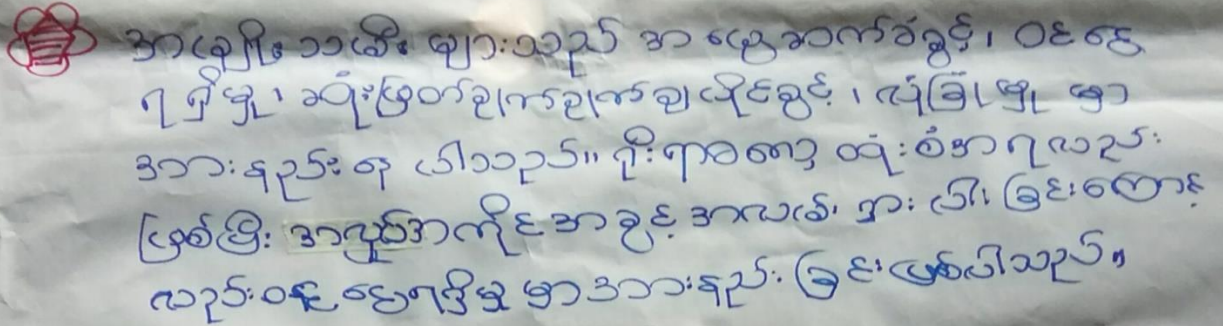 အမျိုးသမီး များသည် အမွေဆက်ခံခွင့်၊ ဝင်ငွေ
ရရှိမှု၊ ဆုံးဖြတ်ချက်ချပိုင်ခွင့်၊ လုံခြုံမှု မှာ
အားနည်းနေ ပါသည်။ ရိုးရာဓလေ့ ထုံးစံအရလည်း
ဖြစ်ပြီး အလုပ်အကိုင်အခွင့်အလမ်း ရှားပါးခြင်းကြောင့်
လည်းဝင်ငွေရရှိမှု မှာအားနည်းခြင်းဖြစ်ပါသည်။